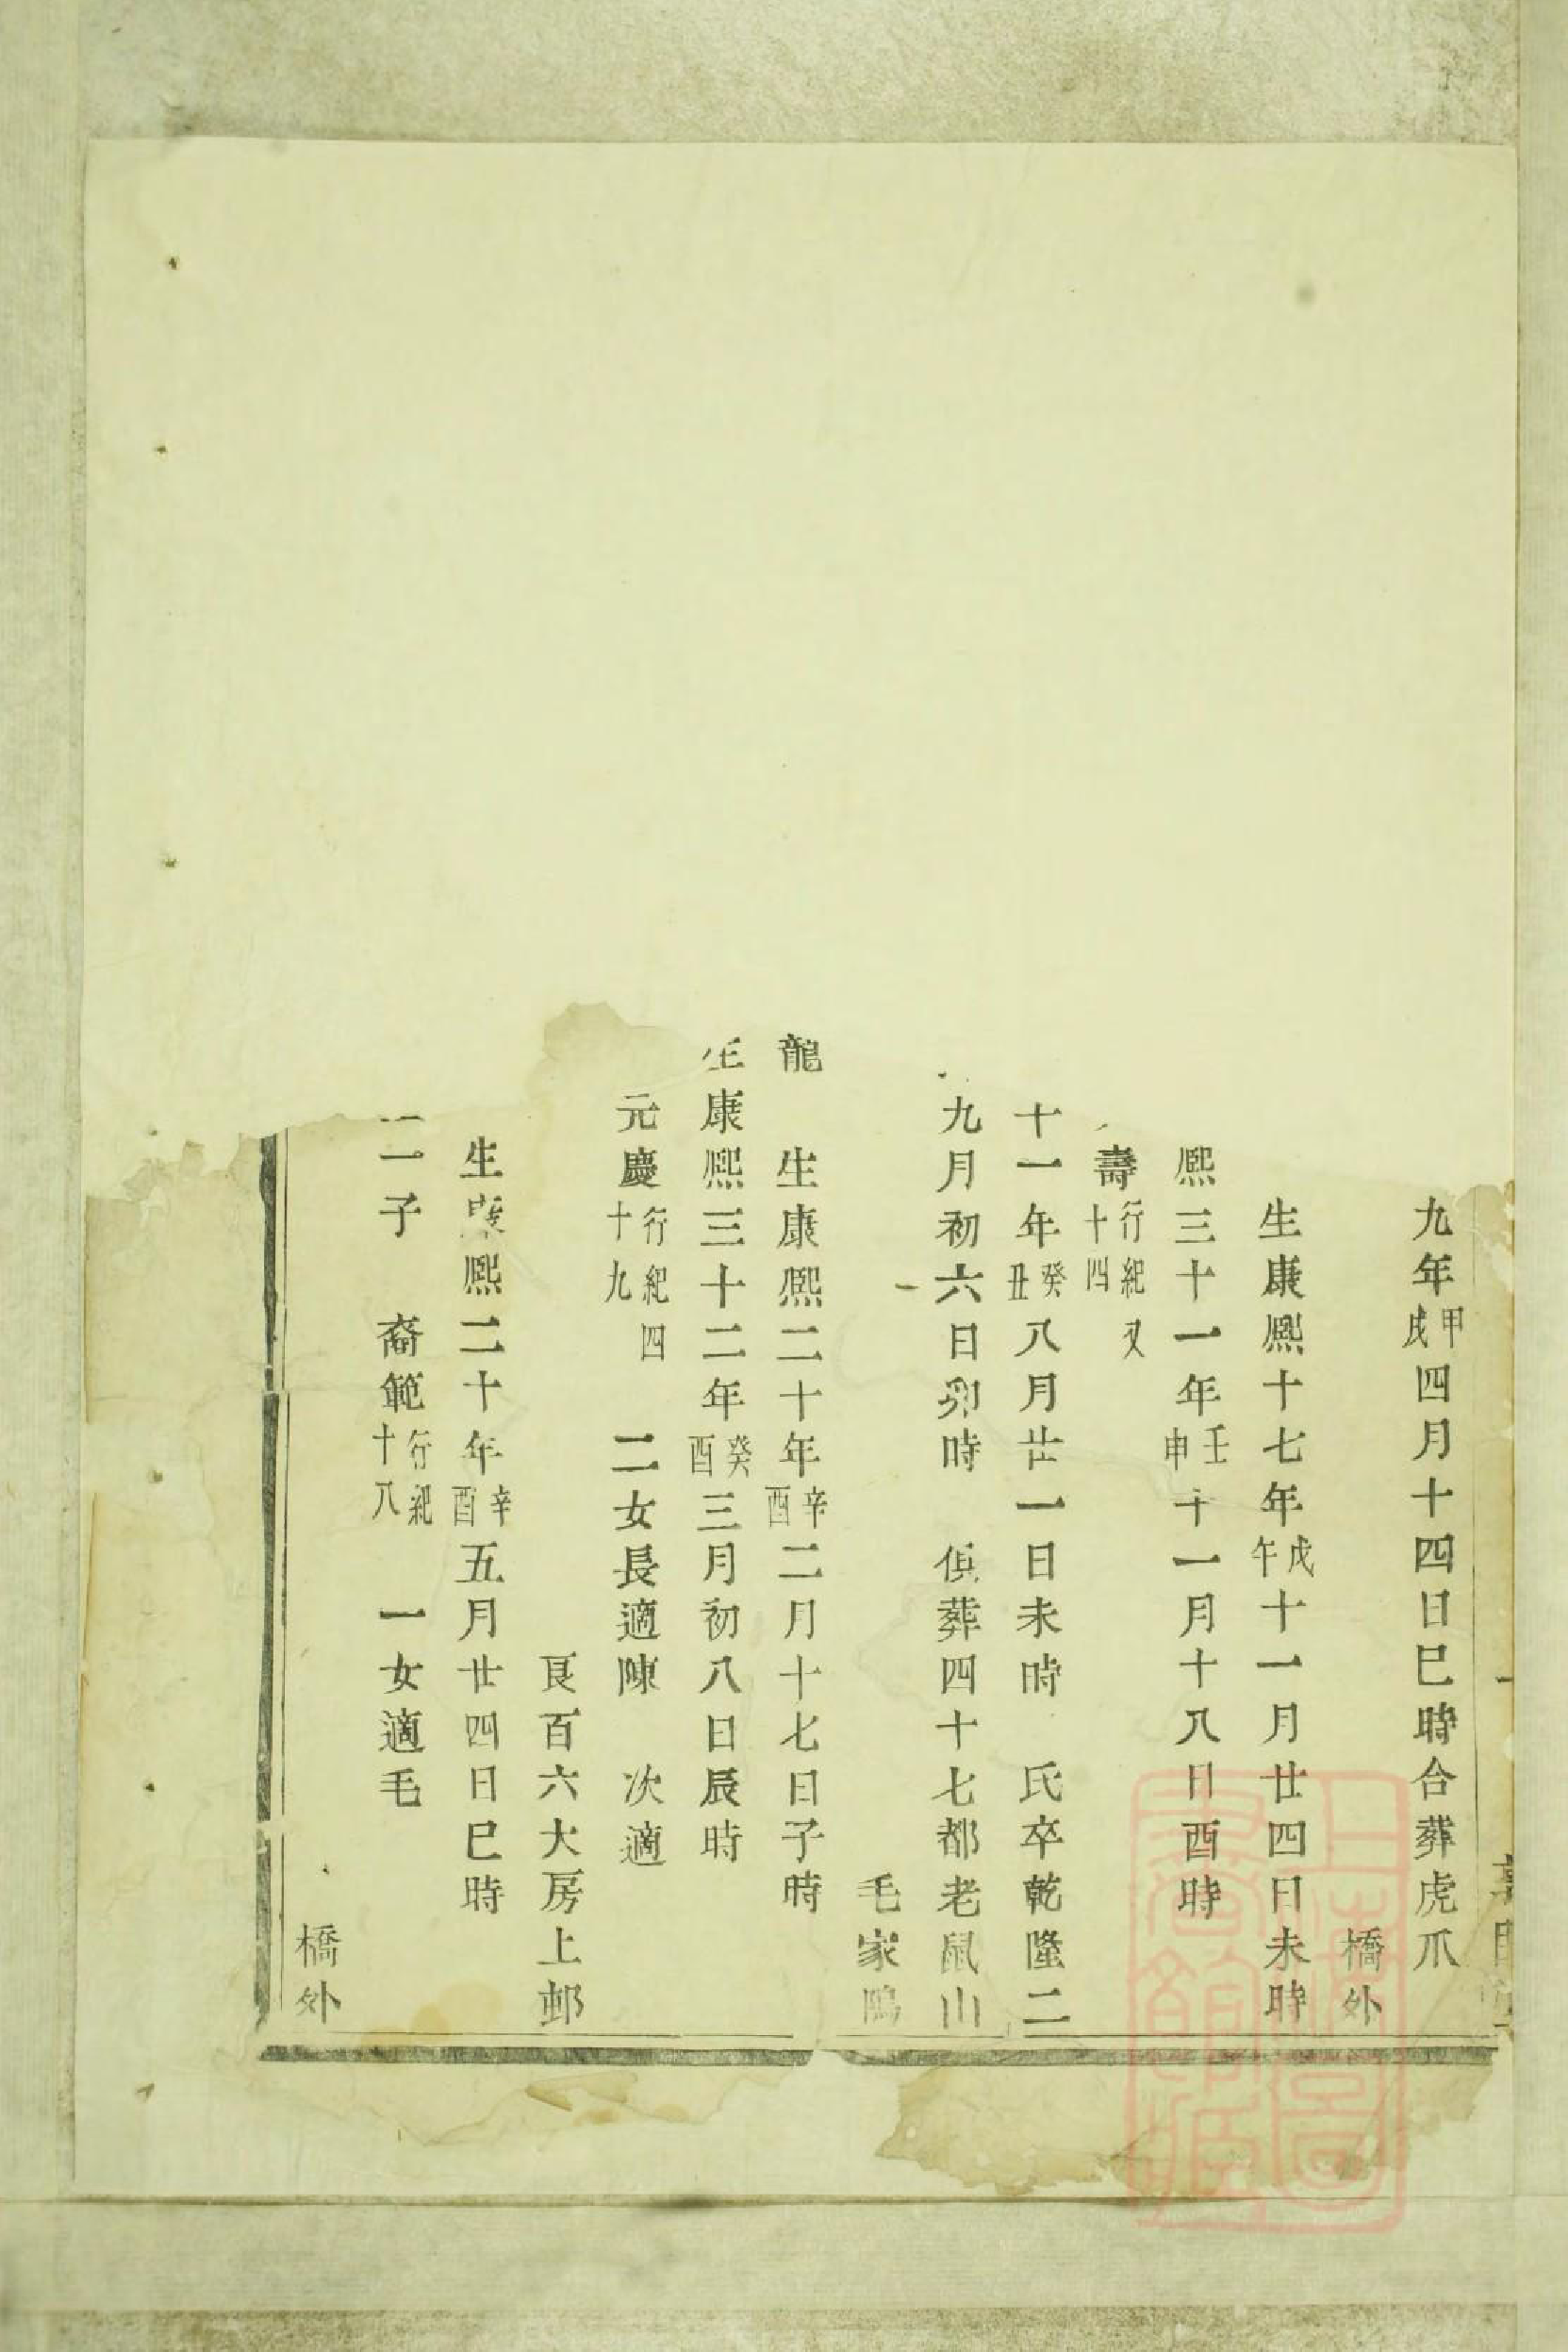 九年甲戌四月十四日巳時合葬虎爪
橋外
生康熙十七年戊午十一月廿四日未時
熙三十一年壬申十一月十八日酉時
壽行紀又十四
十一年癸丑八月廿一日未時 氏卒乾隆二
九月初六日卯時 俱葬四十七都老鼠山
一 毛家
龍 生康熙二十年辛酉二月十七日子時
生康熙三十二年癸酉三月初八日辰時
元慶行紀四十九 二女長適陳 次適
良百六大房上邨
生康熙二十年辛酉五月廿四日巳時
二子 裔範行紀十八 一女適毛
橋外
上海圖書館藏